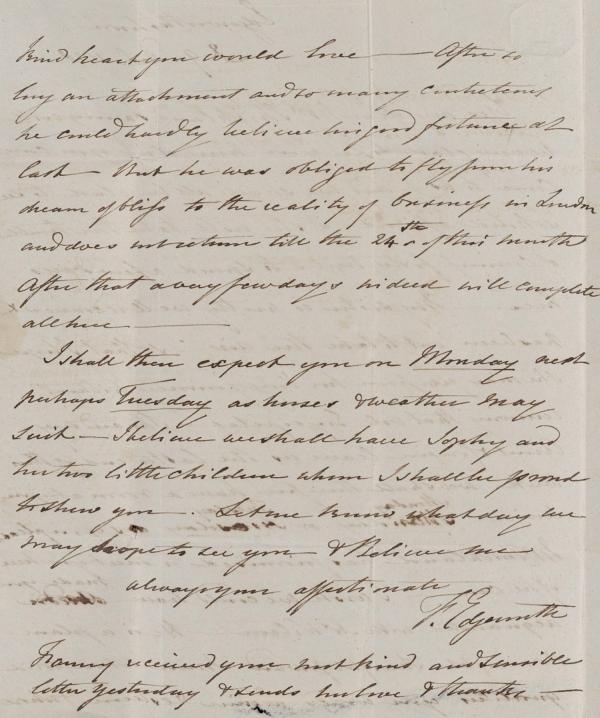 kind heart you would love — After so
long an attachment and so many
he could hardly believe his good fortune at
last — But he was obliged to fly from his
dream of bliss to the reality of business in London
and does not return till the 24th of this month
After that a very few days indeed will complete
all here —
I shall then expect you on Monday next
perhaps Tuesday as horses & weather may
suit — I believe we shall have Sophy and
her two little children whom I shall be proud
to shew you. Let me know what day we
may hope to see you & Believe me
always your affectionate
F. Edgeworth
Fanny received your most kind and sensible
letter yesterday & sends her love & thanks —